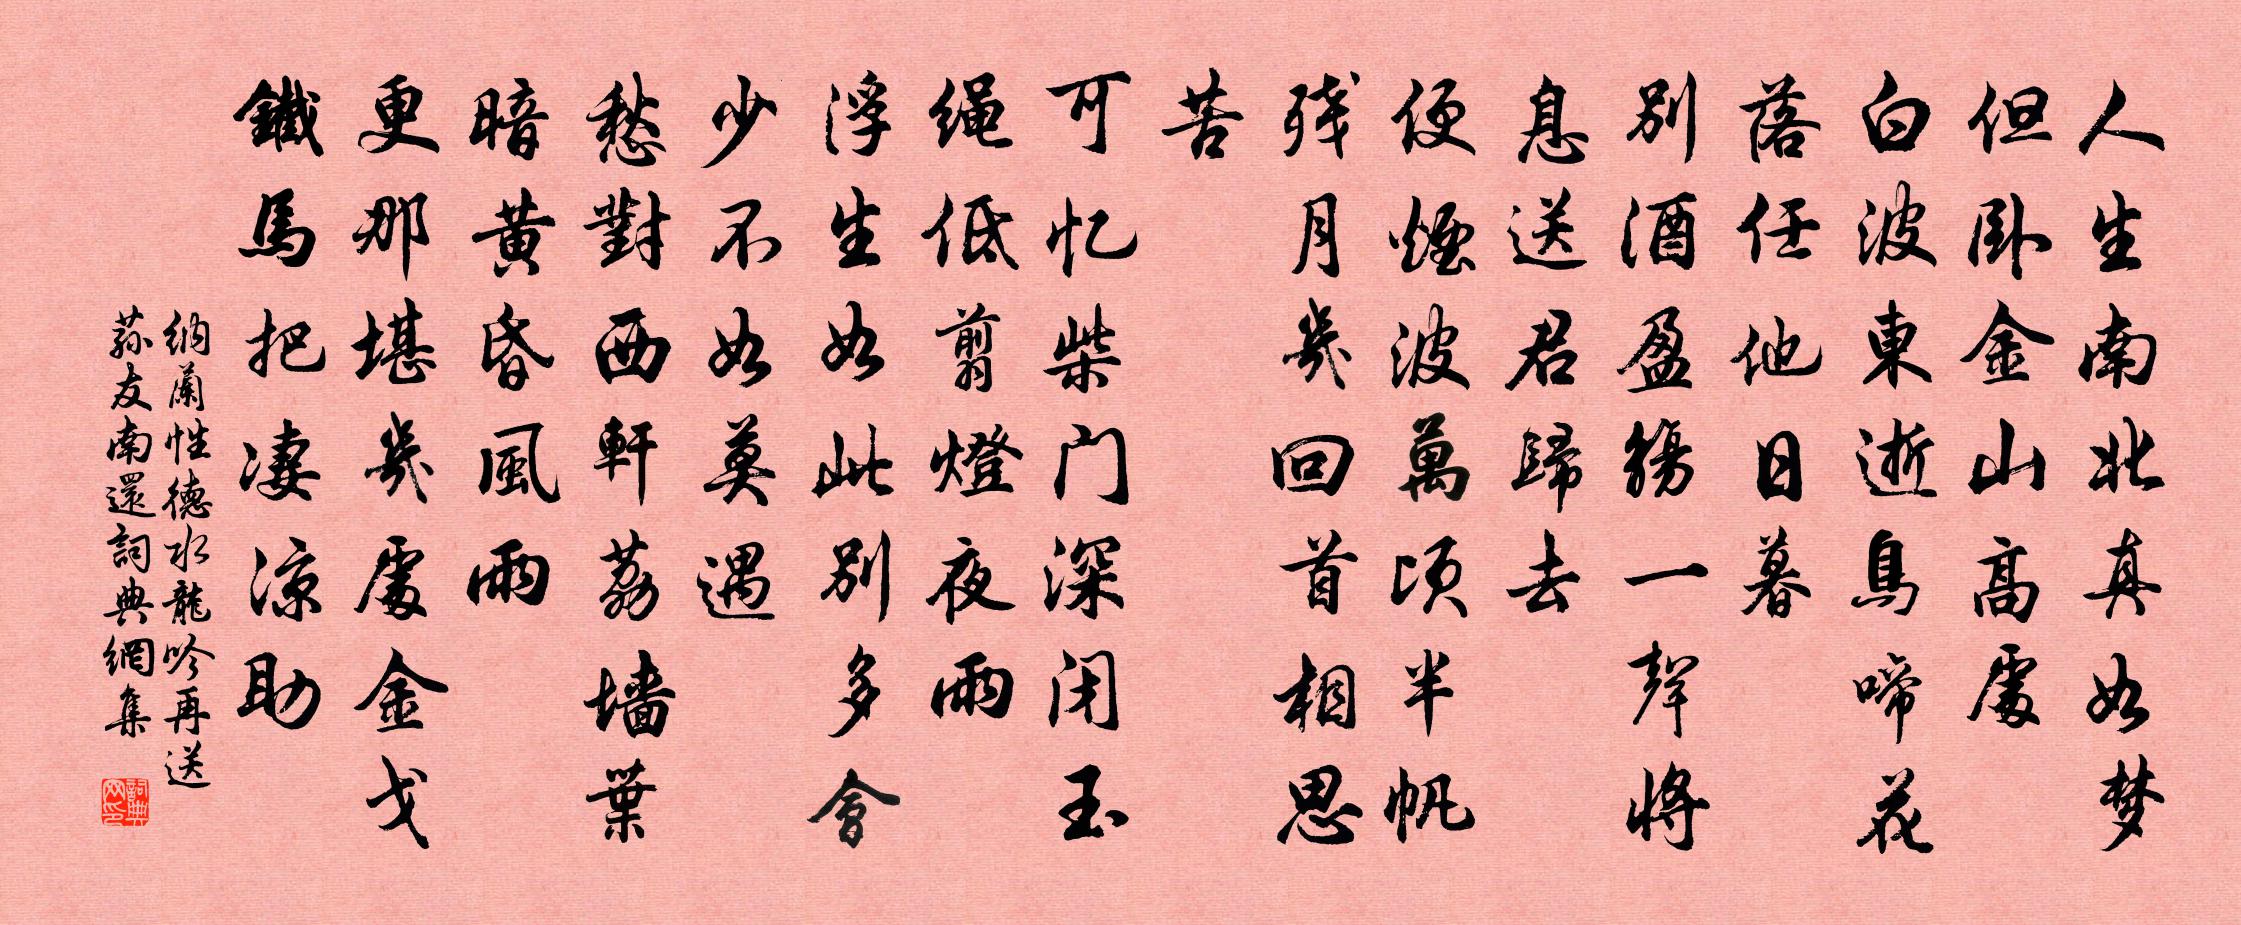 人生南北真如梦
但卧金山高處
白波東逝鳥啼花
落任他日暮
别酒盈觞一聲將
息送君歸去
便煙波萬頃半帆
残月幾回首相思
苦
可忆柴门深闭玉
绳低翦燈夜雨
浮生如此别多會
少不如莫遇
愁對西軒荔墙葉
暗黄昏風雨
更那堪幾處金戈
鐵馬把凄凉助
纳蘭性德水龍吟再送
荪友南還詞典網集
詞典网印